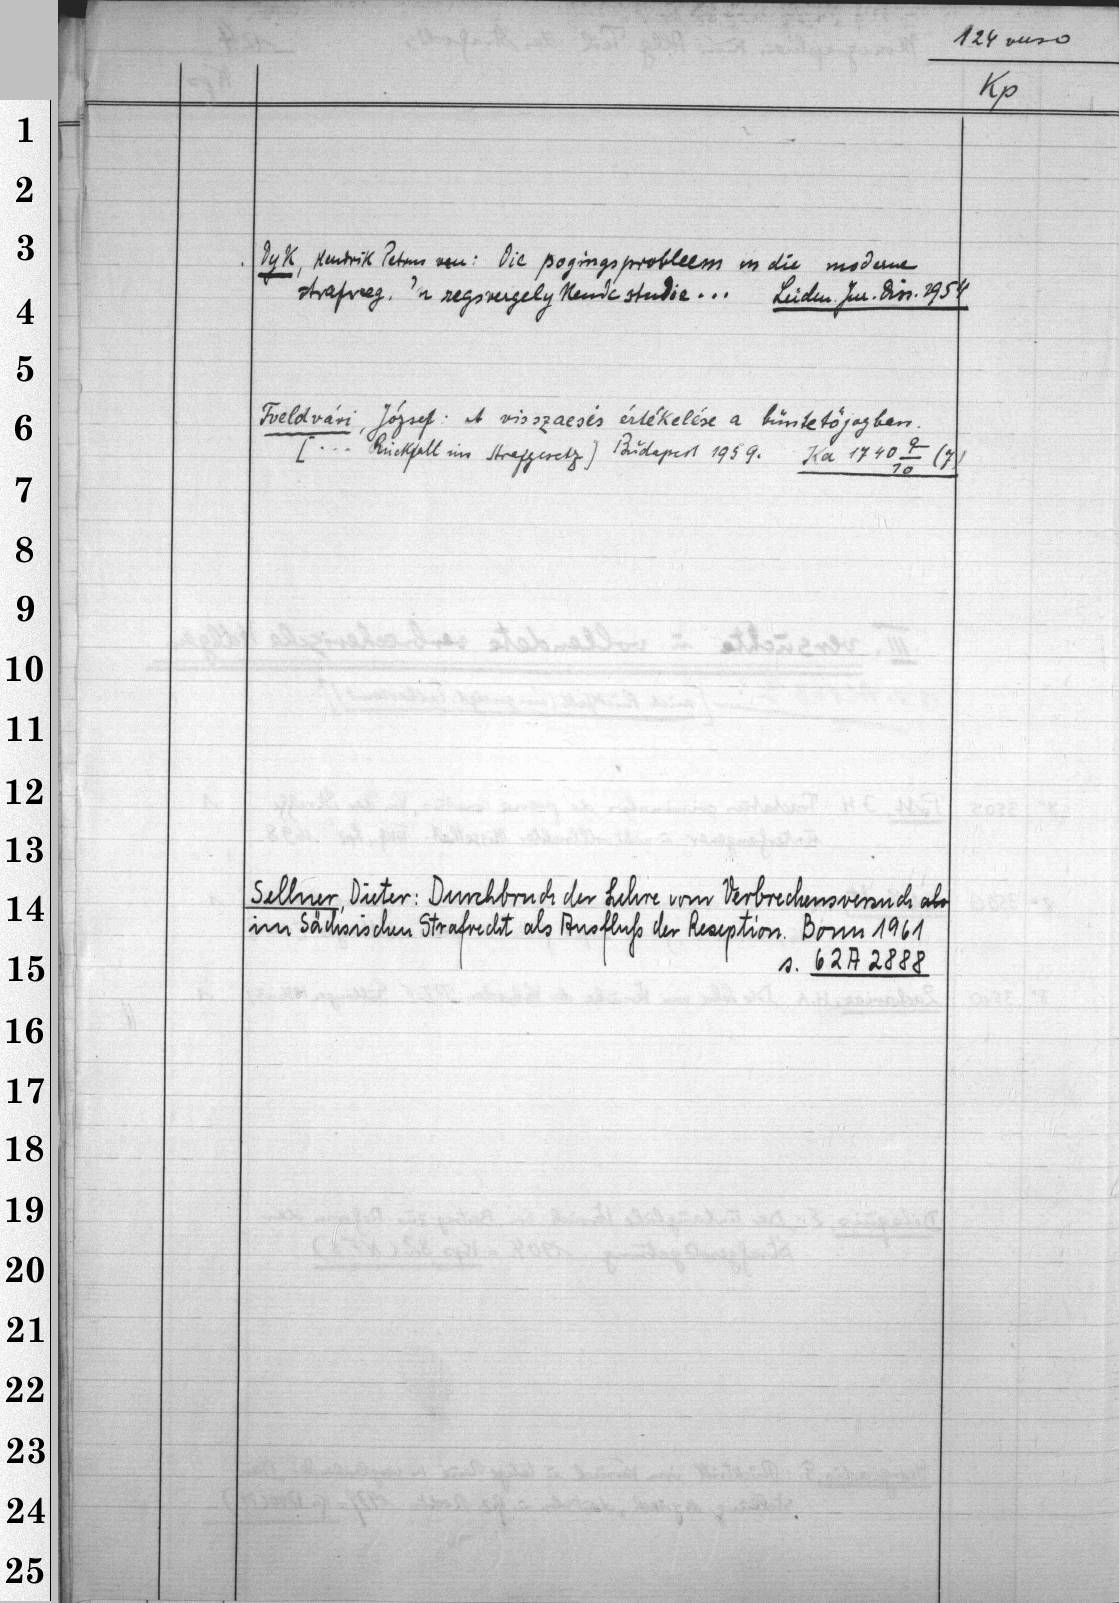 124 verso
Kp
1
2
3
Dyk, Hendrik Petrus van: Die pogingsprobleem in die moderne
strafreg. 'n regsvergelykende studie... Leiden. Jur. Diss. 1954
4
5
6
Foeldvári, József: A visszaesés értékelése a büntetőjogban.
[... Rückfall im Strafgesetz] Budapest 1959. Ka 1740 9/10 (7)
7
8
9
10
11
12
13
14
Sellner, Dieter: Durchbruch der Lehre vom Verbrechensversuch als
im Sächsischen Strafrecht als Ausfluß der Reseption. Bonn 1961
15
s. 62A2888
16
17
18
19
20
21
22
23
24
25